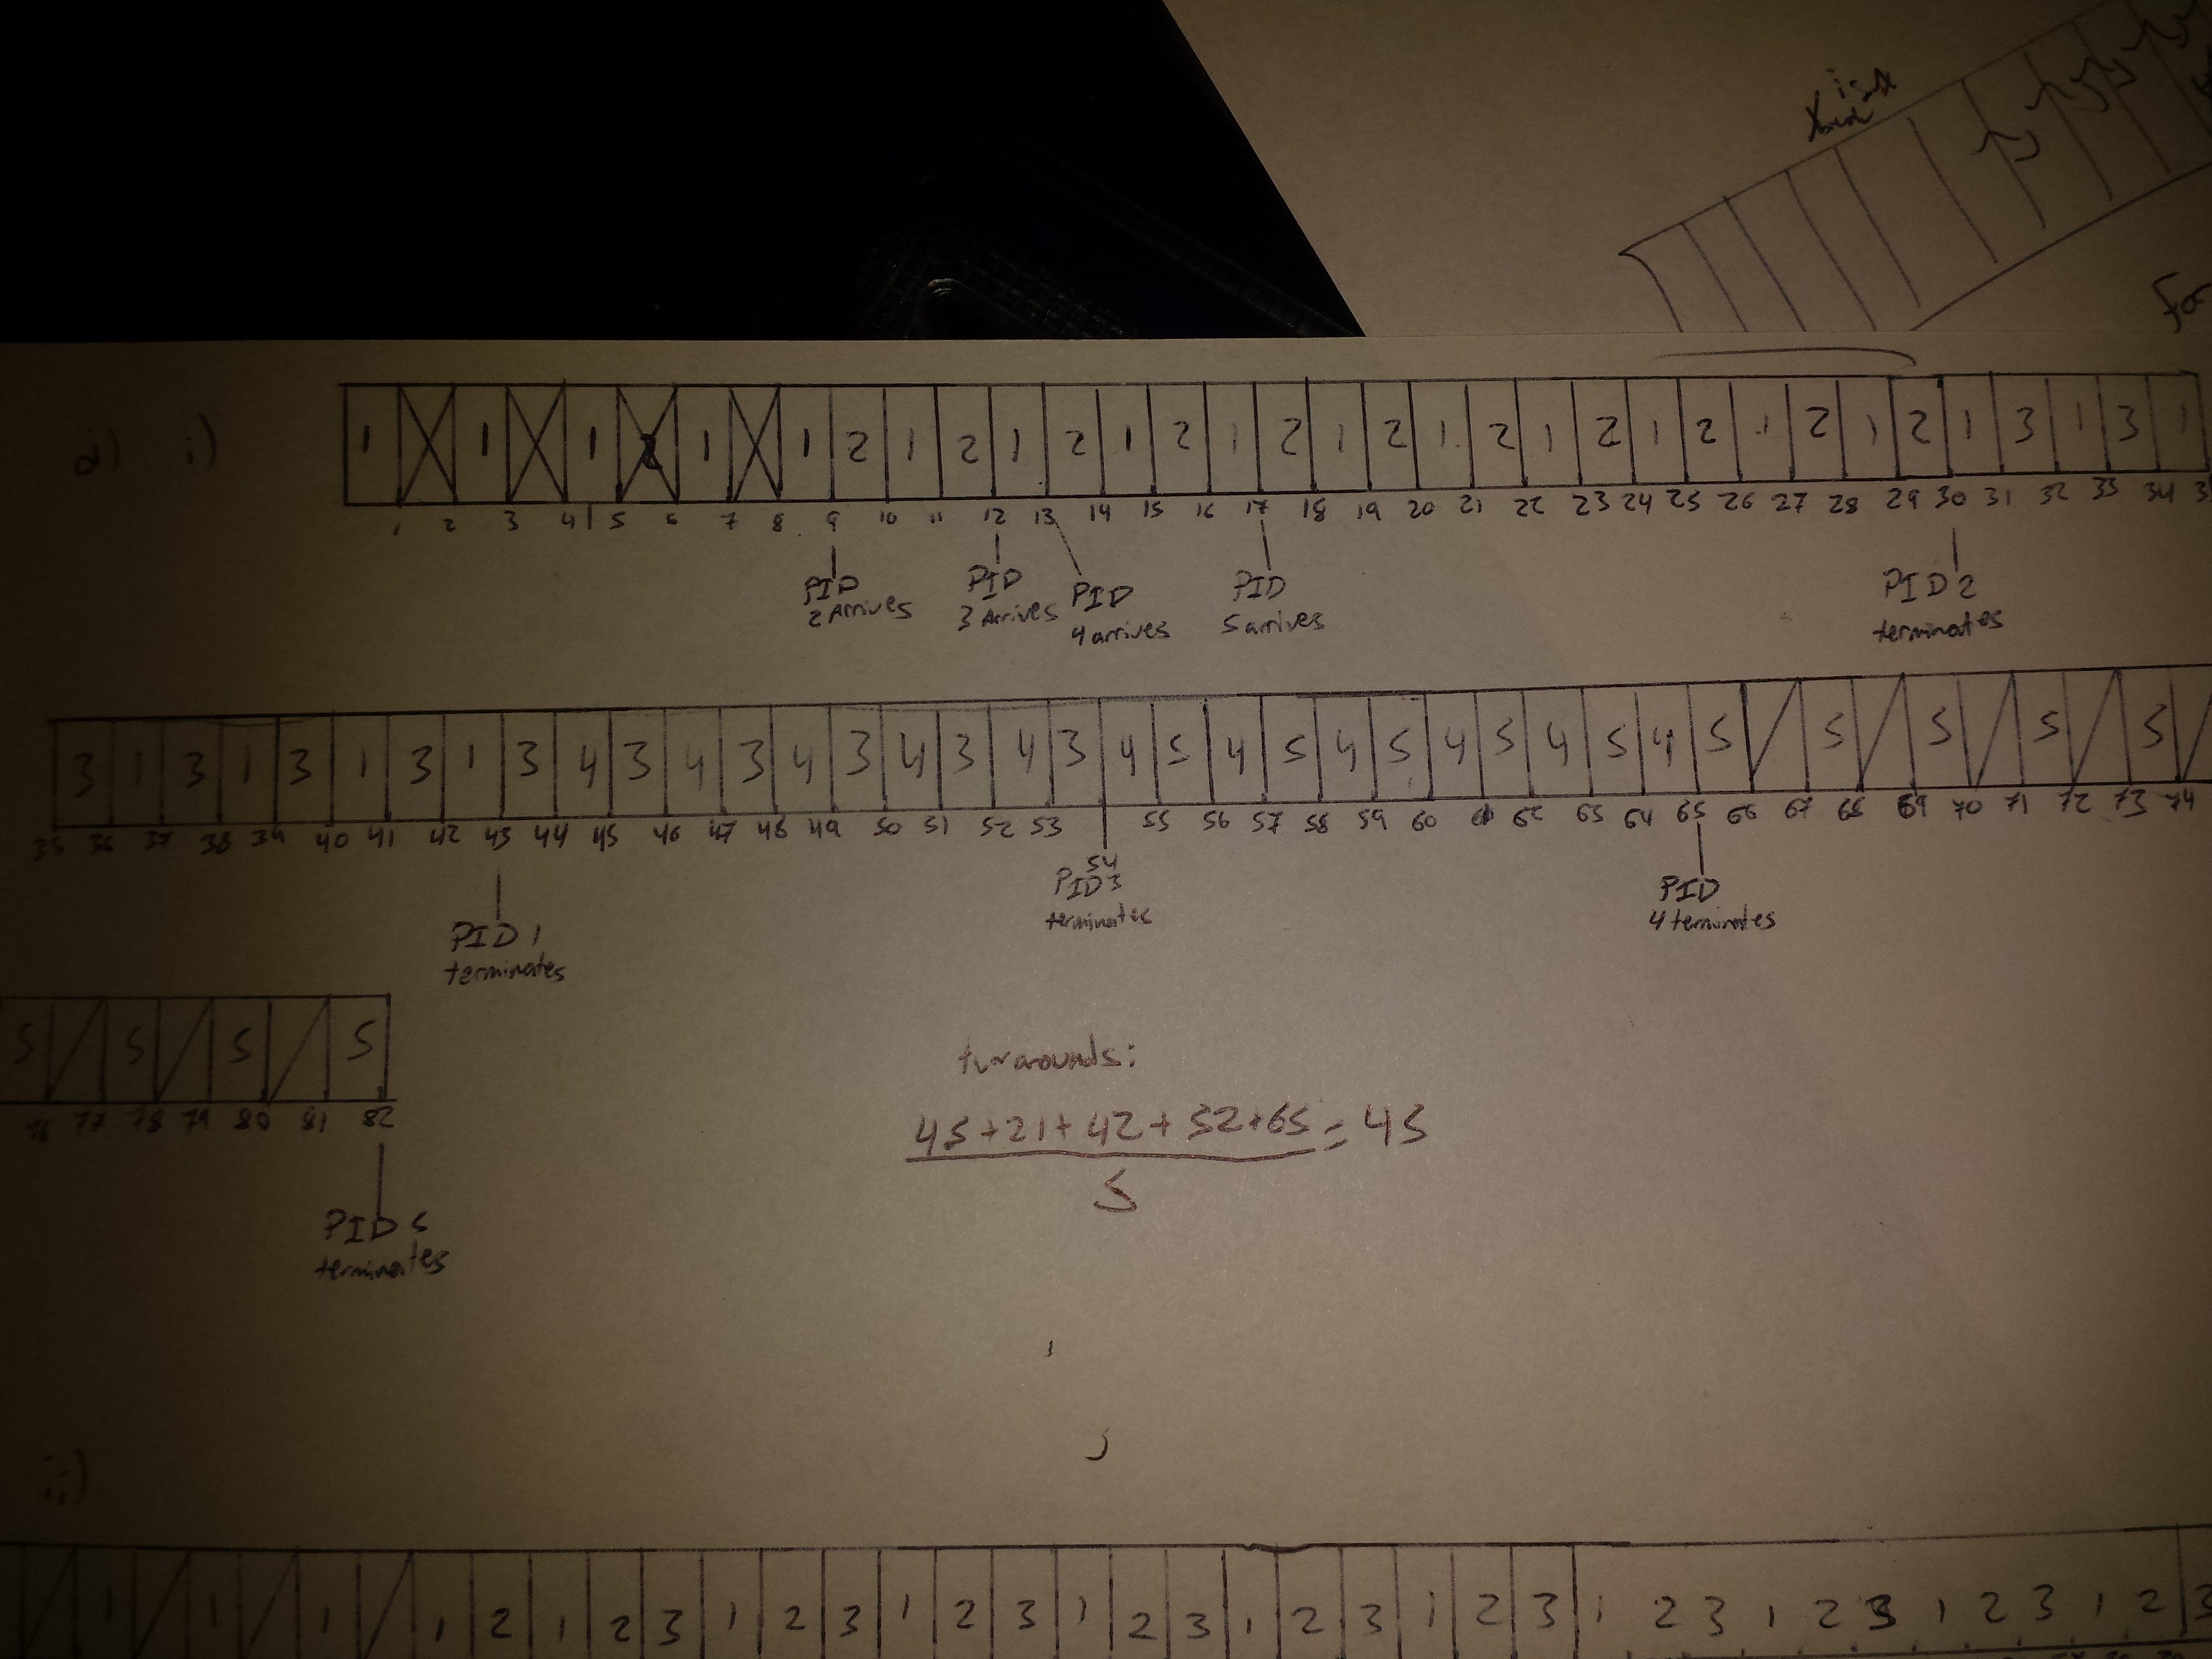 is
For
d) i)
1 1 1 2 1 1 2 1 2 1 2 1 2 1 2 1 2 1 2 1 2 1 2 1 2 1 2 1 3 1 3 1
1 2 3 4 5 6 7 8 9 10 11 12 13 14 15 16 17 18 19 20 21 22 23 24 25 26 27 28 29 30 31 32 33 34 3
PID PID PID PID PID 2
2 Arrives 3 Arrives 4 arrives 5 arrives terminates
3 1 3 1 3 1 3 1 3 4 3 4 3 4 3 4 3 4 3 4 5 4 5 4 5 4 5 4 5 4 5 5 5 5 5
35 36 37 38 39 40 41 42 43 44 45 46 47 48 49 50 51 52 53 54 55 56 57 58 59 60 61 62 63 64 65 66 67 68 69 70 71 72 73 74
PID 1 PID 3 PID
terminates terminates 4 terminates
5 5 5 5
76 77 78 79 80 81 82
PID 5
terminates
turarounds:
45+21+42+52+65 = 45
5
ii)
1 1 1 1 2 1 2 3 1 2 3 1 2 3 1 2 3 1 2 3 1 2 3 1 2 3 1 2 3 1 2 3 1 2 3